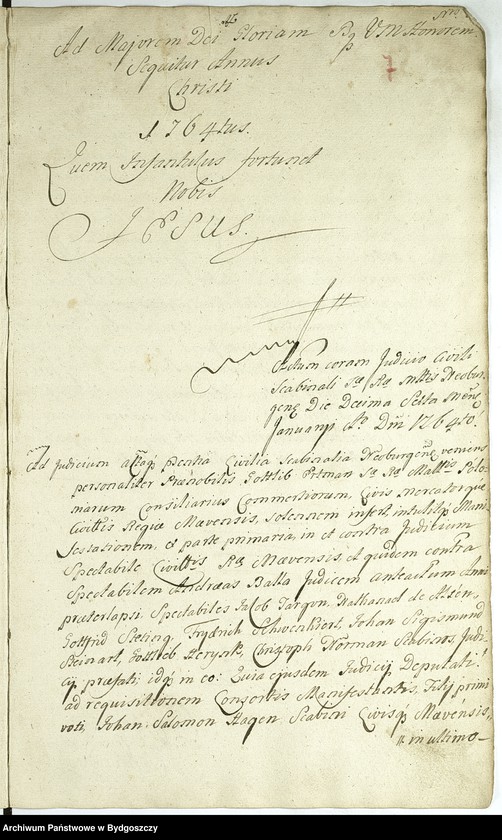 Ad Majorem Dei Gloriam Bq VM Honorem
Sequitur Annus
Christi
1764tus.
Quem Infantulus fortunet
Nobis
JESUS.
Actum coram Judicio Civili
Scabinali Sae Rae Mttis Neobur-
gen Die Decima Sexta Mens
Januarij Ao Dni 1764to.
Ad Judicium Actaq pntia Civilia Scabinalia Neoburgen veniens
personaliter Pranobilis Gottlib Sae Rae Mattis Polo-
niarum Consiliarius Commertiorum, Civis Mercatorque
Civittis Regiae Maevensis, Solennem infert, intulitq Mani-
festationem, ex parte primaria, in et contra Judicium
Spectabile Civittis Rae Maevensis, et quidem contra
Spectabilem Andraeas Balla Judicem anteactum Anni
praeterlapsi Spectabiles Jacob Nathanael de
Gottfrid Frydrich Johan Sigasmund
Gottlob Christoph Norman Scabinos, Judi-
cij praefati idq in eo: Quia ejusdem Judicij Deputati
ad requisitionem Consortis Manifestantis, Filij primi
voti, Johan Salomon Hagen Scabini Civisq Maevensis,
in ultimo
Archiwum Państwowe w Bydgoszczy